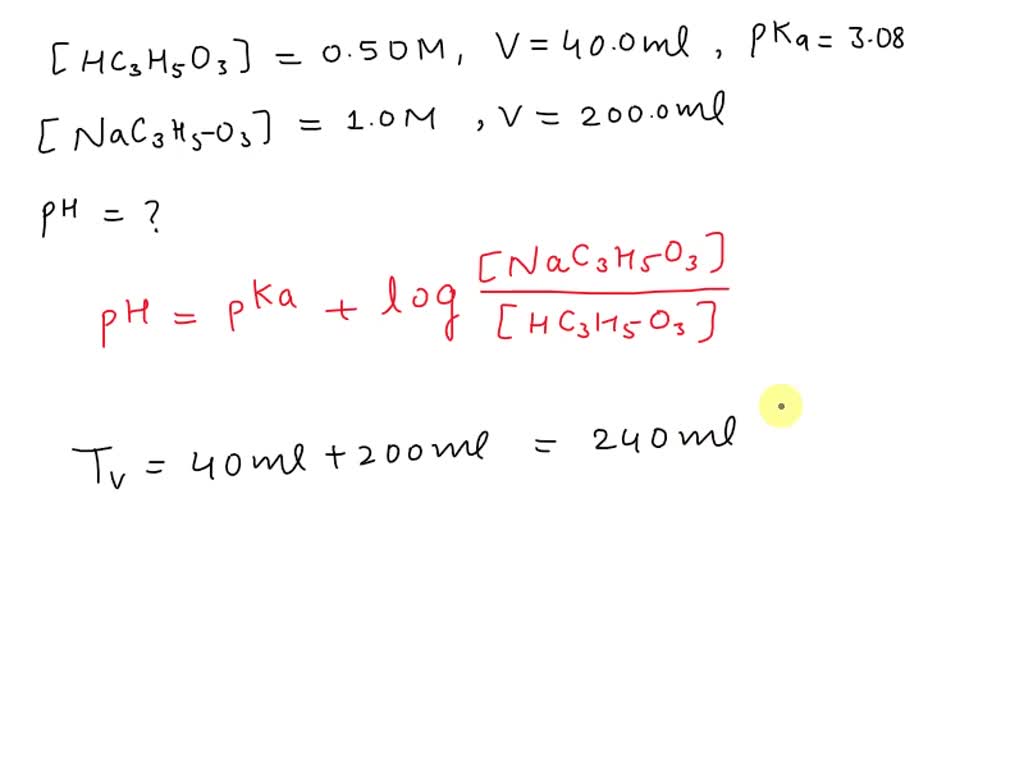 [HC₃H₅O₃] = 0.50M, V = 40.0ml, pKa = 3.08
[NaC₃H₅O₃] = 1.0M, V = 200.0ml
pH = ?
pH = pKa + log [NaC₃H₅O₃] / [HC₃H₅O₃]
Tv = 40ml + 200ml = 240ml